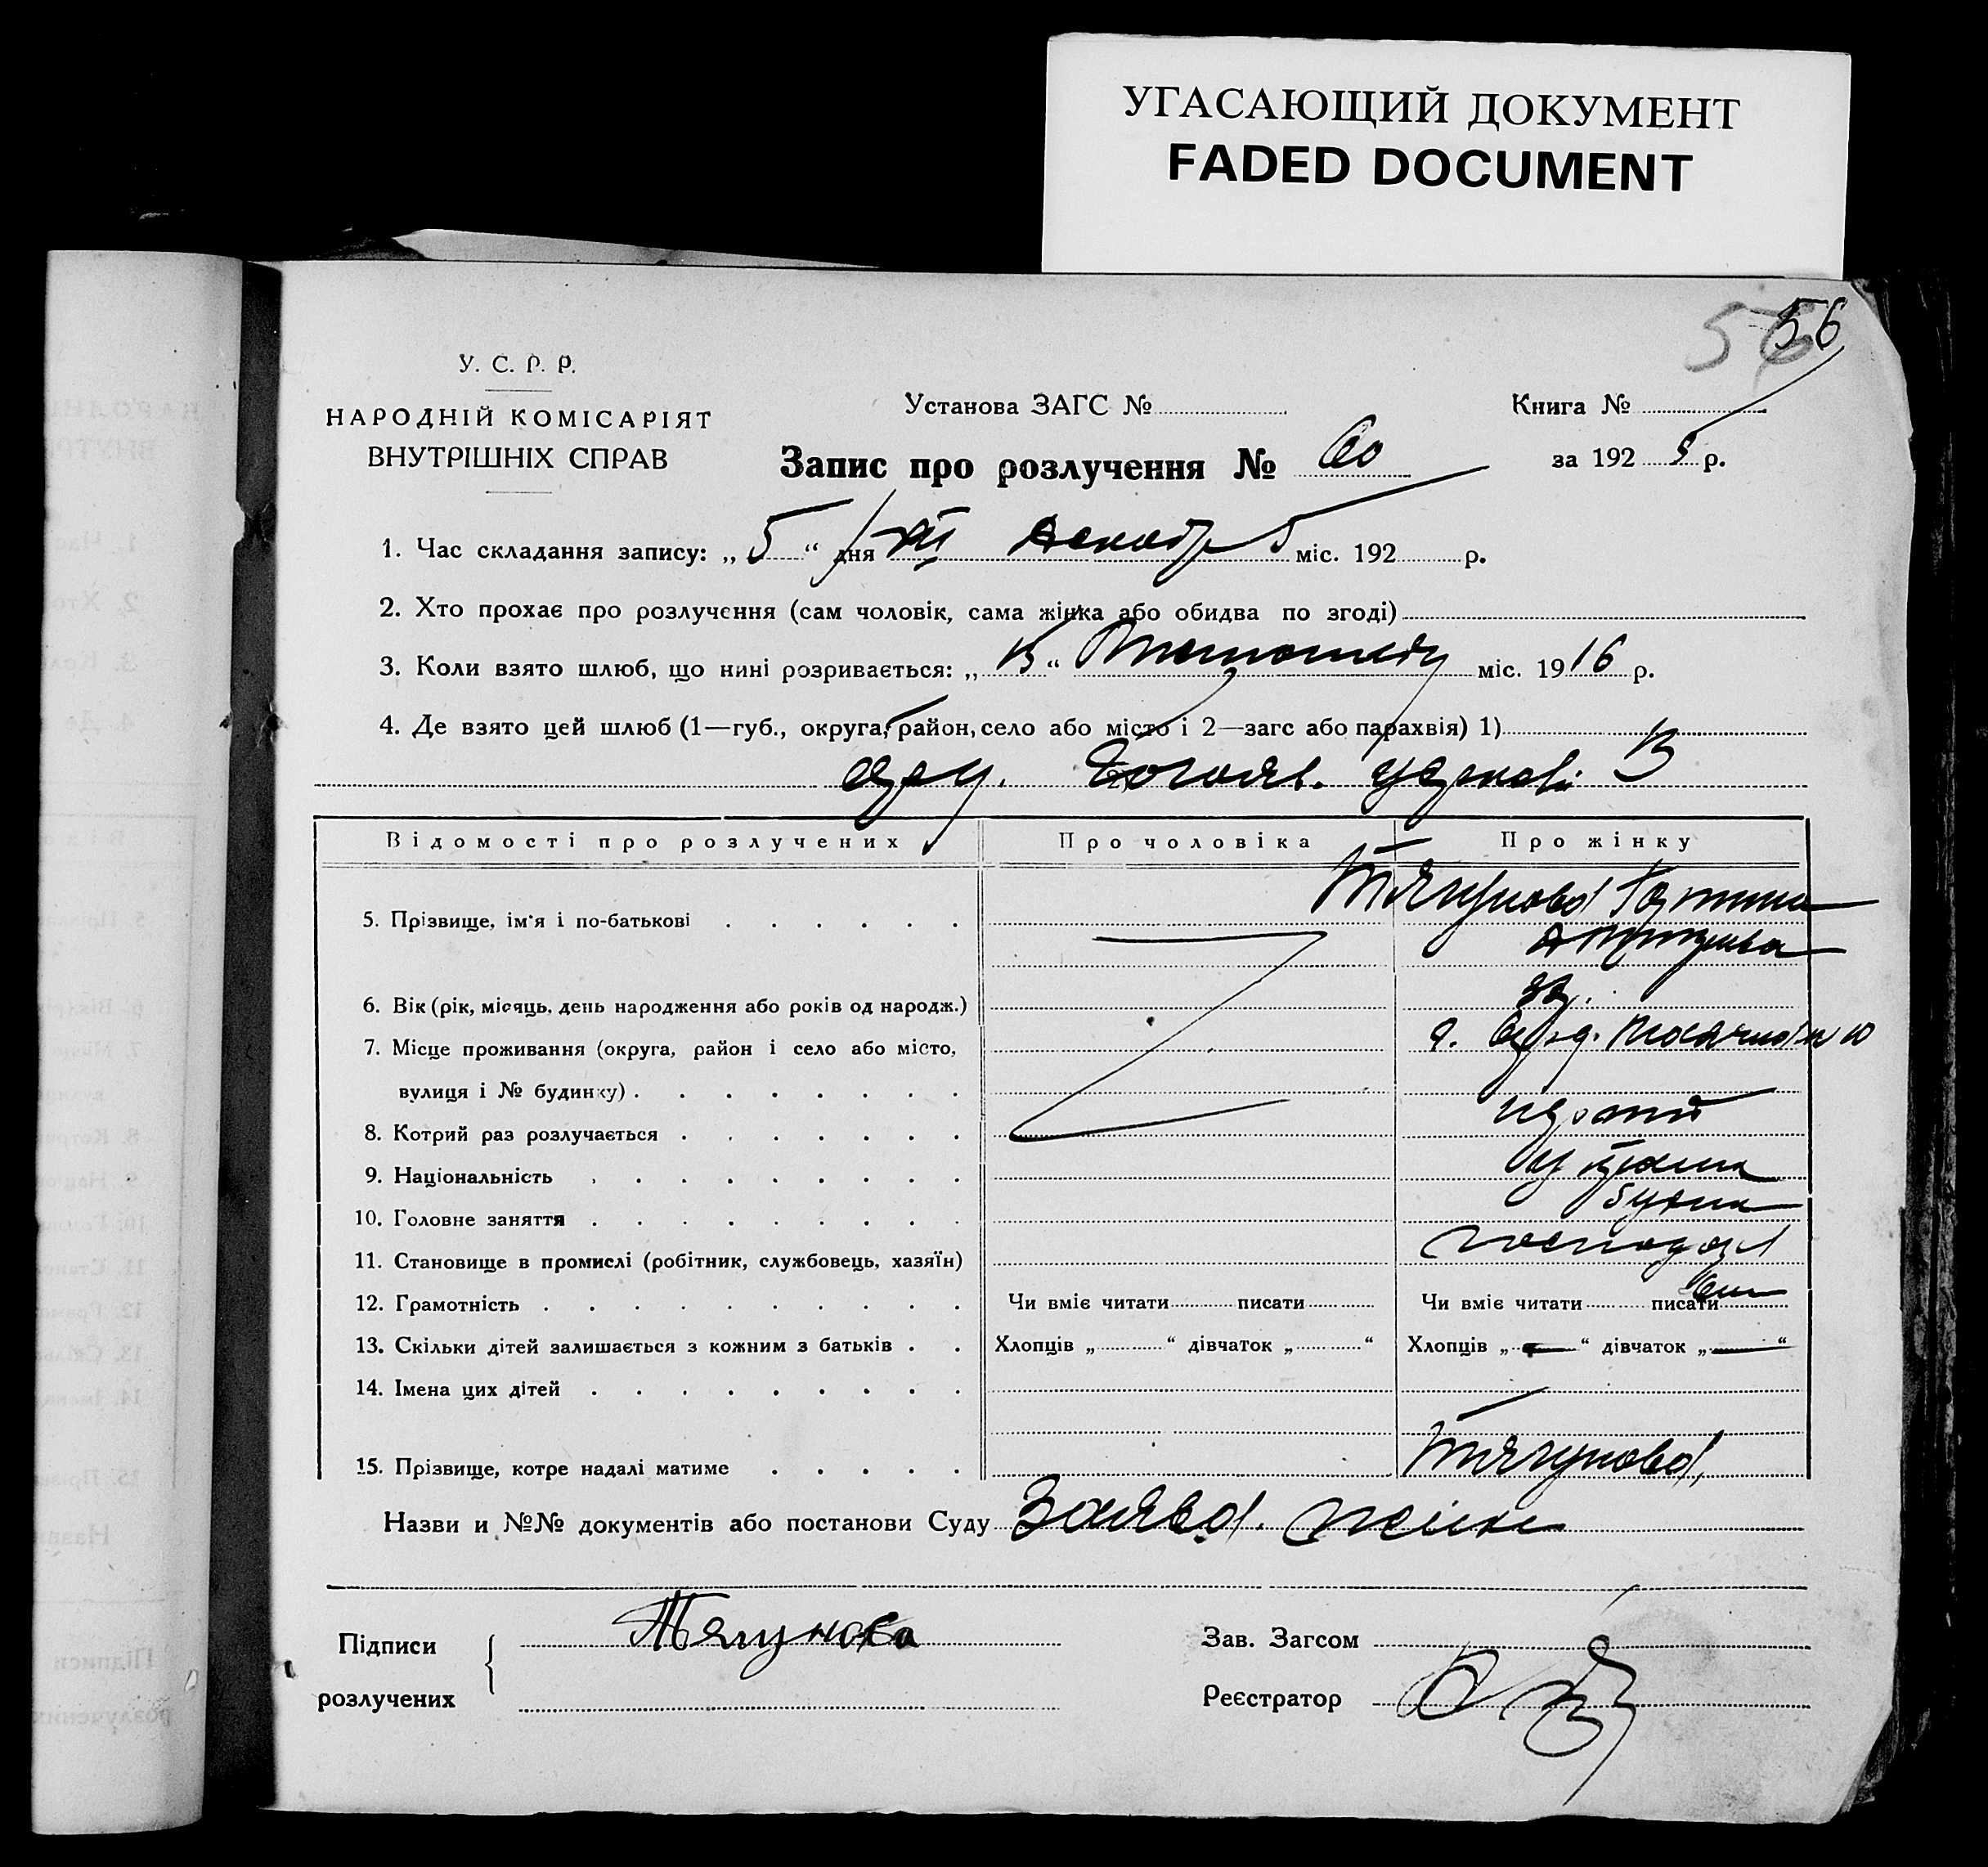 УГАСАЮЩИЙ ДОКУМЕНТ
FADED DOCUMENT
56 56
У. С. Р. Р.
НАРОДНІЙ КОМІСАРІЯТ
ВНУТРІШНІХ СПРАВ
Установа ЗАГС №
Книга №
Запис про розлучення № 60
за 1925 р.
1. Час складання запису: „5“ дня XII міс. 1925 р.
2. Хто прохає про розлучення (сам чоловік, сама жінка або обидва по згоді)
3. Коли взято шлюб, що нині розривається: „ “ міс. 1916 р.
4. Де взято цей шлюб (1—губ., округа, район, село або місто і 2—загс або парахвія) 1)
2)
Відомості про розлучених Про чоловіка Про жінку
5. Прізвище, ім'я і по-батькові Тягунова
6. Вік (рік, місяць, день народження або років од народж.)
7. Місце проживання (округа, район і село або місто,
вулиця і № будинку)
8. Котрий раз розлучається
9. Національність
10. Головне заняття
11. Становище в промислі (робітник, службовець, хазяїн)
12. Грамотність Чи вміє читати писати Чи вміє читати писати
13. Скільки дітей залишається з кожним з батьків Хлопців „ “ дівчаток „ “ Хлопців „—“ дівчаток „—“
14. Імена цих дітей
15. Прізвище, котре надалі матиме Тягунова
Назви и №№ документів або постанови Суду Заява жінки
Підписи Тягунова Зав. Загсом
розлучених Реєстратор